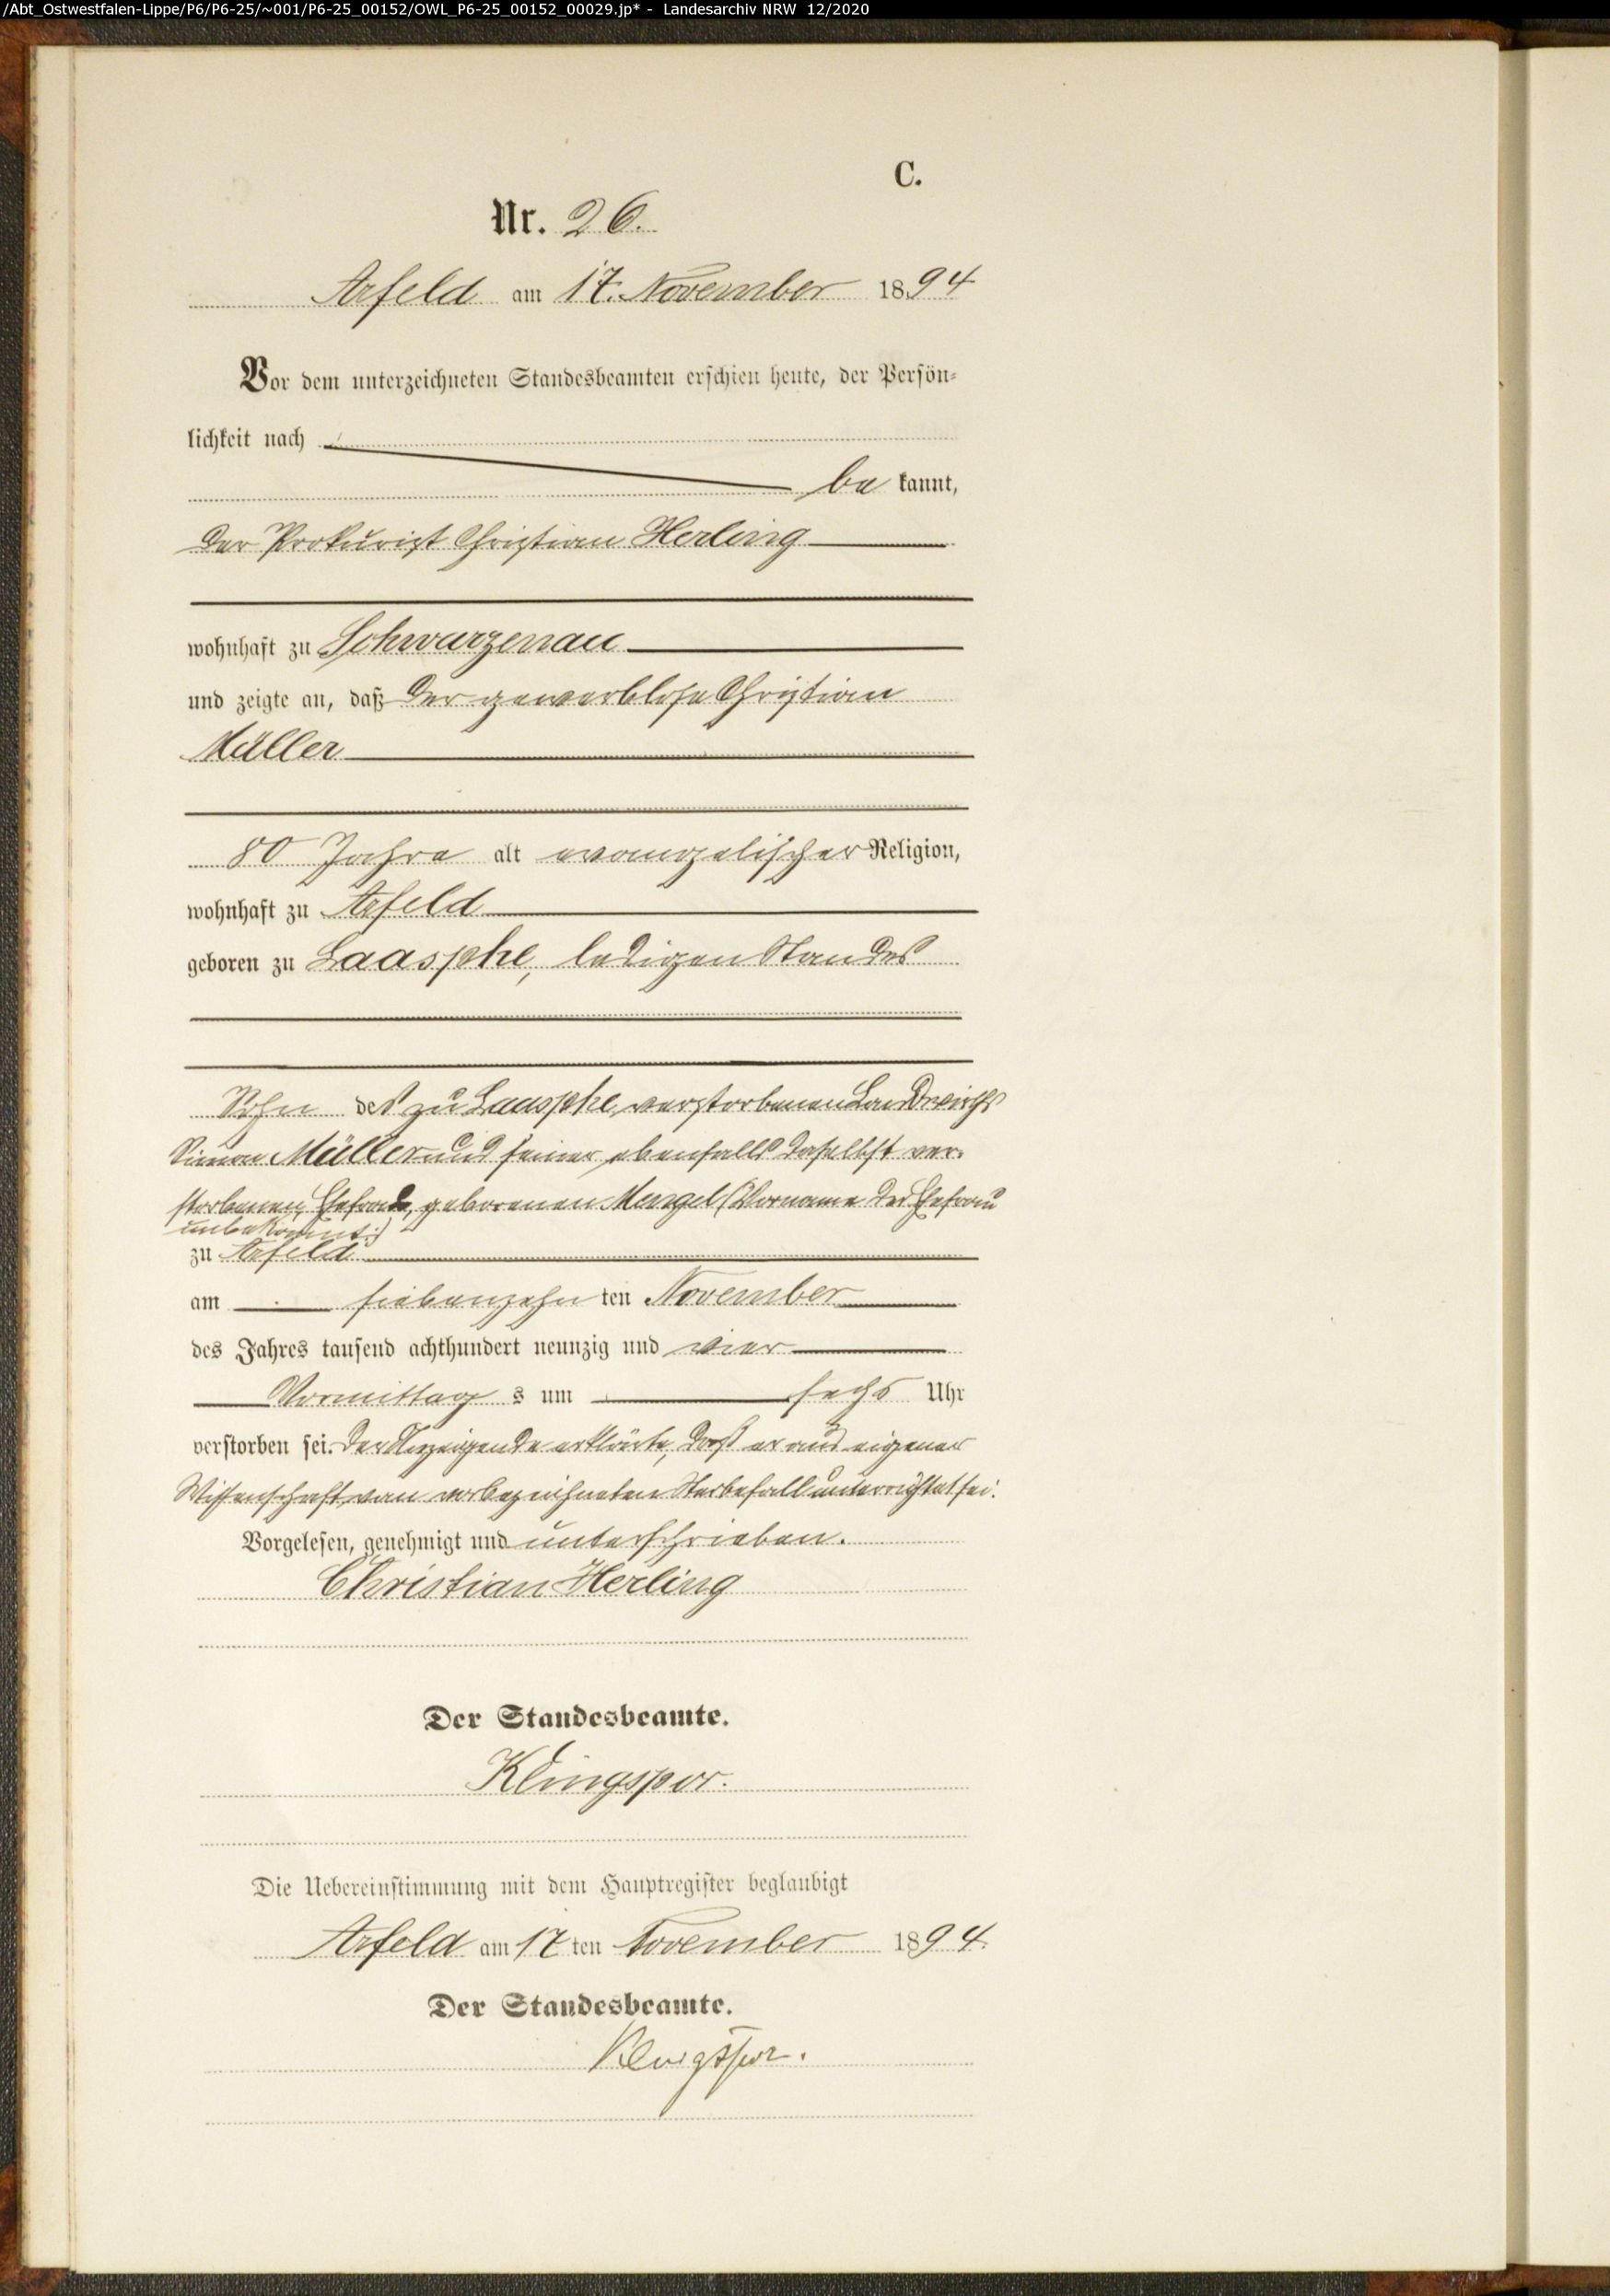 /Abt_Ostwestfalen-Lippe/P6/P6-25/~001/P6-25_00152/OWL_P6-25_00152_00029.jp* - Landesarchiv NRW 12/2020
C.
Nr. 26.
Arfeld am 17. November 1894
Vor dem unterzeichneten Standesbeamten erschien heute, der Persön-
lichkeit nach
be kannt,
der Prokurist Christian Herling
wohnhaft zu Schwarzenau
und zeigte an, daß der gewerblose Christian
Müller
80 Jahre alt evangelischer Religion,
wohnhaft zu Arfeld
geboren zu Laasphe, ledigen Standes
Sohn des zu Laasphe verstorbenen Landwirths
Simon Müller und seiner ebenfalls daselbst ver-
storbenen Ehefrau, geborenen Mengel (Vorname der Ehefrau
unbekannt.)
zu Arfeld
am siebenzehn ten November
des Jahres tausend achthundert neunzig und vier
Vormittag s um sechs Uhr
verstorben sei. Der Anzeigende erklärte, daß er aus eigener
Wissenschaft von vorbezeichneten Sterbefall unterrichtet sei.
Vorgelesen, genehmigt und unterschrieben.
Christian Herling
Der Standesbeamte.
Klingspor.
Die Uebereinstimmung mit dem Hauptregister beglaubigt
Arfeld am 17 ten November 1894.
Der Standesbeamte.
Klingspor.